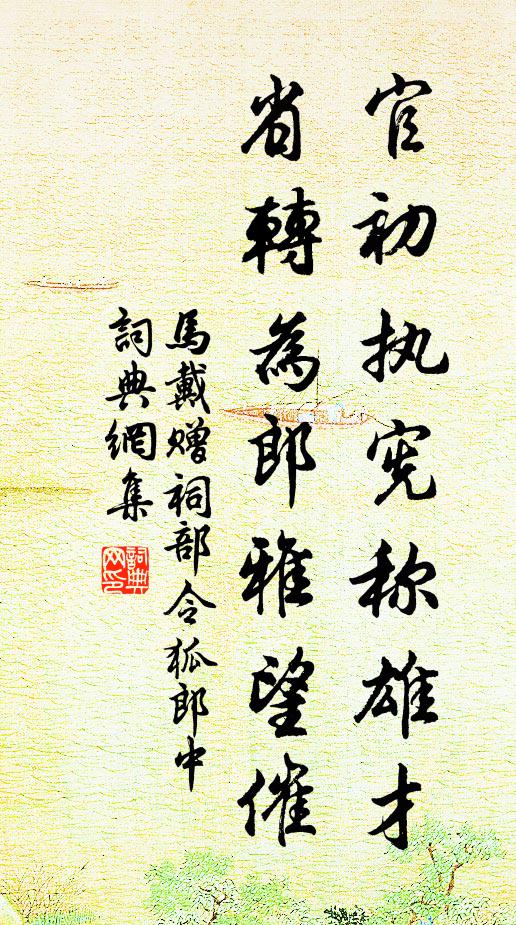 官初执宪称雄才
省转為郎雅望催
馬戴赠祠部令狐郎中
詞典網集
詞典网印